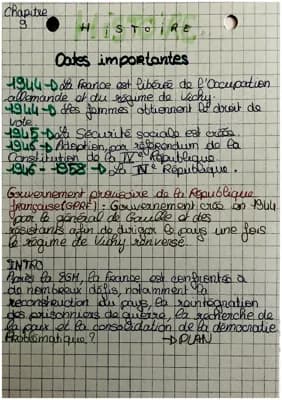 Chapitre
9
HISTOIRE
Dates importantes
1944 → La France est libérée de l'Occupation
allemande et du régime de Vichy.
1944 → Les femmes obtiennent le droit de
vote.
1945 → La Sécurité sociale est créée.
1946 → Adoption, par référendum de la
Constitution de la IVe République
1946 - 1958 → La IVe République.
Gouvernement provisoire de la République
française (GPRF) : Gouvernement créé en 1944
par le général de Gaulle et des
résistants afin de diriger le pays une fois
le régime de Vichy renversé.
INTRO
Après la 2GM, la France est confrontée à
de nombreux défis, notamment la
reconstruction du pays, la réintégration
des prisonniers de guerre, la recherche de
la paix et la consolidation de la démocratie
Problématique ? → PLAN